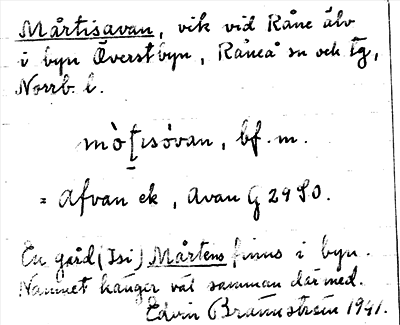 Mårtisavan, vik vid Råne älv
i byn Överstbyn, Råneå sn och tg,
Norrb. l.
mò ʈɩsóvan, bf. m.
= Afvan ek, Avan G 29 SO.
En gård (Isi) Mårtens finns i byn.
Namnet hänger väl samman därmed.
Edvin Brännström 1941.